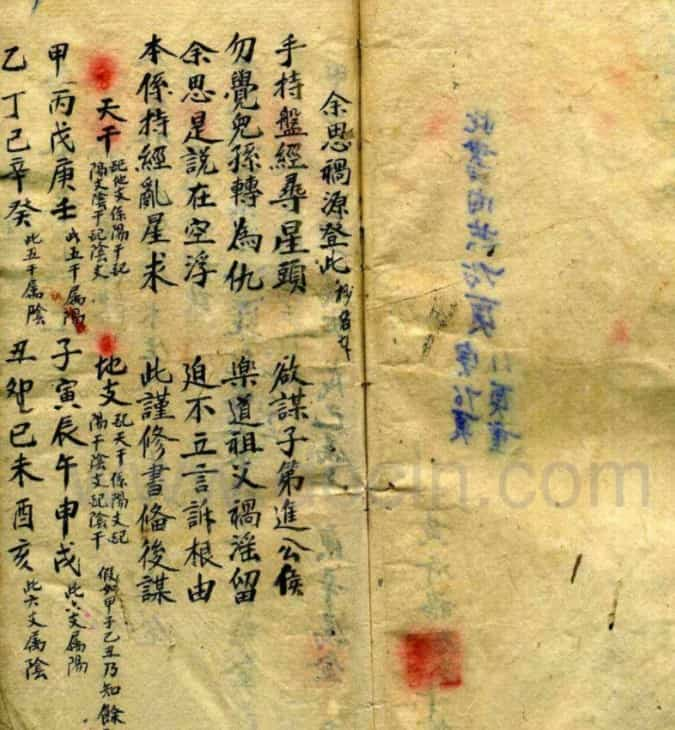 余思禍源登此
手持盤經尋星頭 欲謀子第進公侯
勿覺兒孫轉為仇 樂道祖父禍滛留
余思是說在空浮 迫不立言訴根由
本係持經亂星求 此謹修書俻後謀
天干 配地支係陽干配陽支陰干配陰支 地支 配天干係陽支配陽干陰支配陰干 假如甲子乙丑乃知餘
甲丙戊庚壬 此五干属陽 子寅辰午申戌 此六支属陽
乙丁己辛癸 此五干属陰 丑卯巳未酉亥 此六支属陰